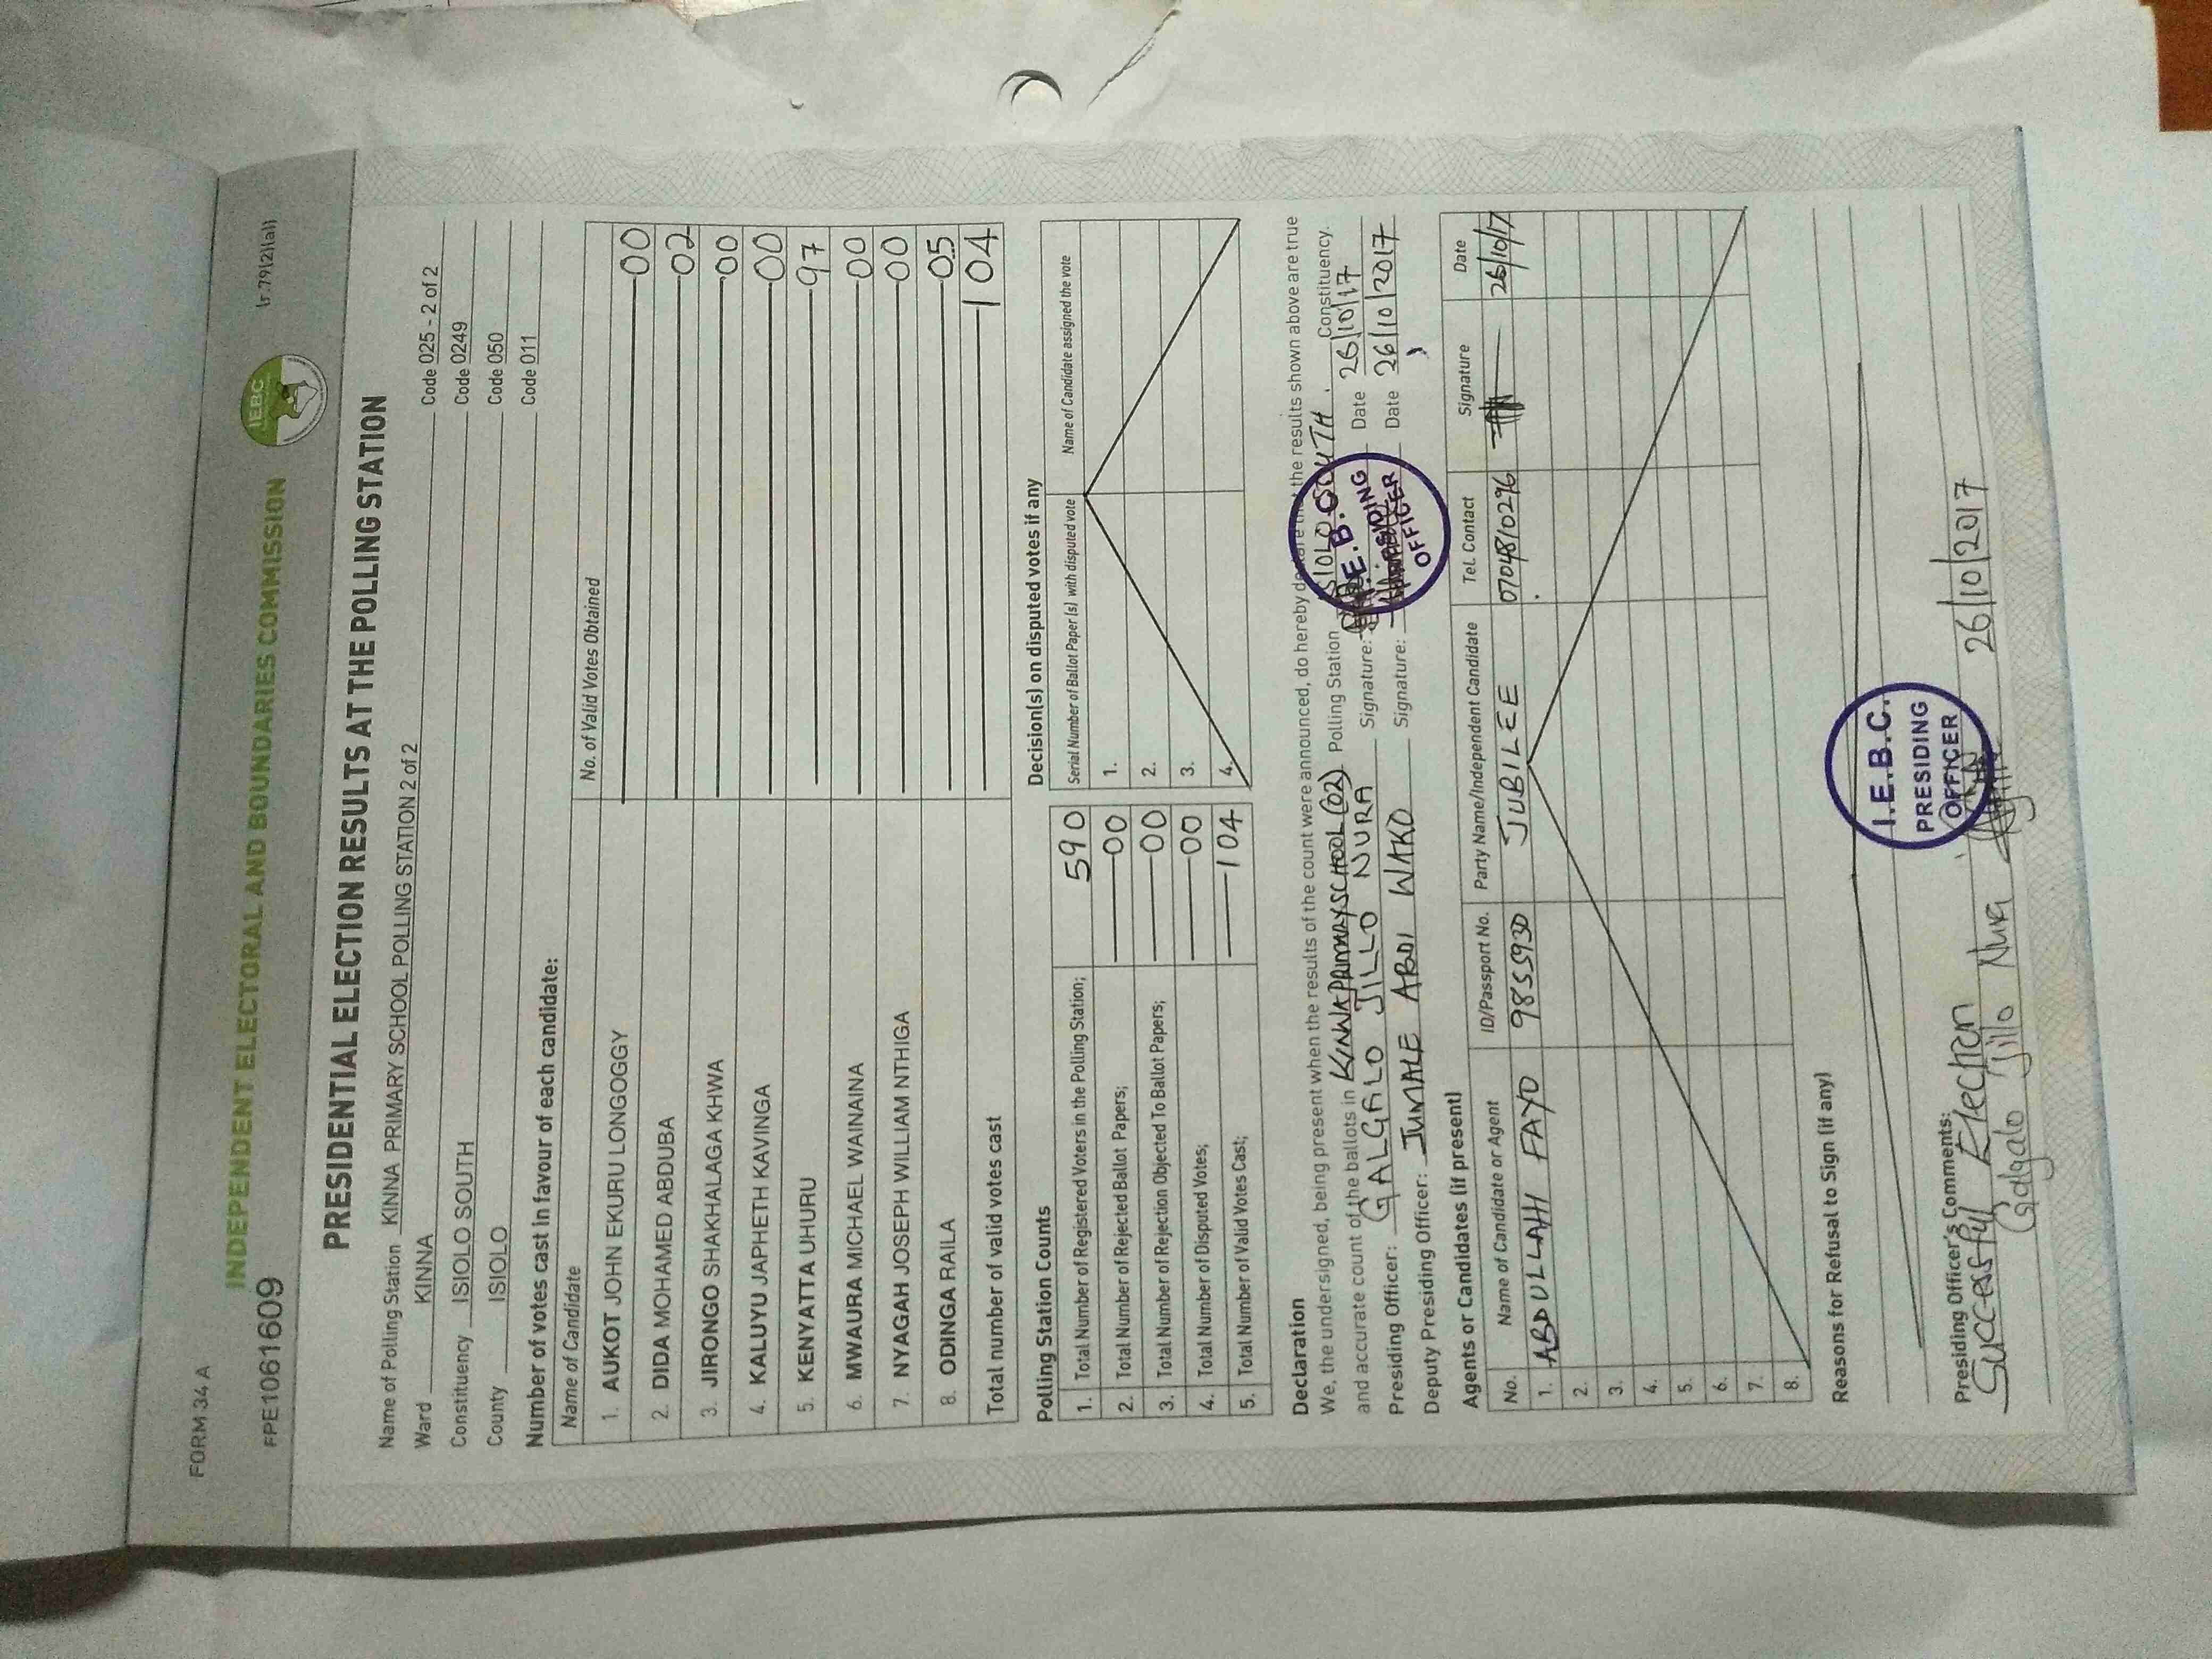 FORM 34 A
INDEPENDENT ELECTORAL AND BOUNDARIES COMMISSION
IEBC
(r.79(2)(a))
FPE1061609
PRESIDENTIAL ELECTION RESULTS AT THE POLLING STATION
Name of Polling Station KINNA PRIMARY SCHOOL POLLING STATION 2 of 2 Code 025 - 2 of 2
Ward KINNA Code 0249
Constituency ISIOLO SOUTH Code 050
County ISIOLO Code 011
Number of votes cast in favour of each candidate:
Name of Candidate No. of Valid Votes Obtained
1. AUKOT JOHN EKURU LONGOGGY 00
2. DIDA MOHAMED ABDUBA 02
3. JIRONGO SHAKHALAGA KHWA 00
4. KALUYU JAPHETH KAVINGA 00
5. KENYATTA UHURU 97
6. MWAURA MICHAEL WAINAINA 00
7. NYAGAH JOSEPH WILLIAM NTHIGA 00
8. ODINGA RAILA 05
Total number of valid votes cast 104
Polling Station Counts
1. Total Number of Registered Voters in the Polling Station; 590
2. Total Number of Rejected Ballot Papers; 00
3. Total Number of Rejection Objected To Ballot Papers; 00
4. Total Number of Disputed Votes; 00
5. Total Number of Valid Votes Cast; 104
Decision(s) on disputed votes if any
Serial Number of Ballot Paper (s) with disputed vote Name of Candidate assigned the vote
1.
2.
3.
4.
Declaration
We, the undersigned, being present when the results of the count were announced, do hereby declare the results shown above are true
and accurate count of the ballots in KINNA PRIMAY SCHOOL (02) Polling Station ISIOLO SOUTH Constituency.
Presiding Officer: GALGALO JILLO NURA Signature: Date 26/10/17
Deputy Presiding Officer: JUMALE ABDI WAKO Signature: Date 26/10/2017
I.E.B.C.
PRESIDING
OFFICER
Agents or Candidates (if present)
No. Name of Candidate or Agent ID/Passport No. Party Name/Independent Candidate Tel. Contact Signature Date
1. ABDULLAHI FAYO 9855930 JUBILEE 0704810296 26/10/17
2.
3.
4.
5.
6.
7.
8.
Reasons for Refusal to Sign (if any)
I.E.B.C.
PRESIDING
OFFICER
Presiding Officer's Comments:
Successful Election
Galgalo Jillo Nura 26/10/2017